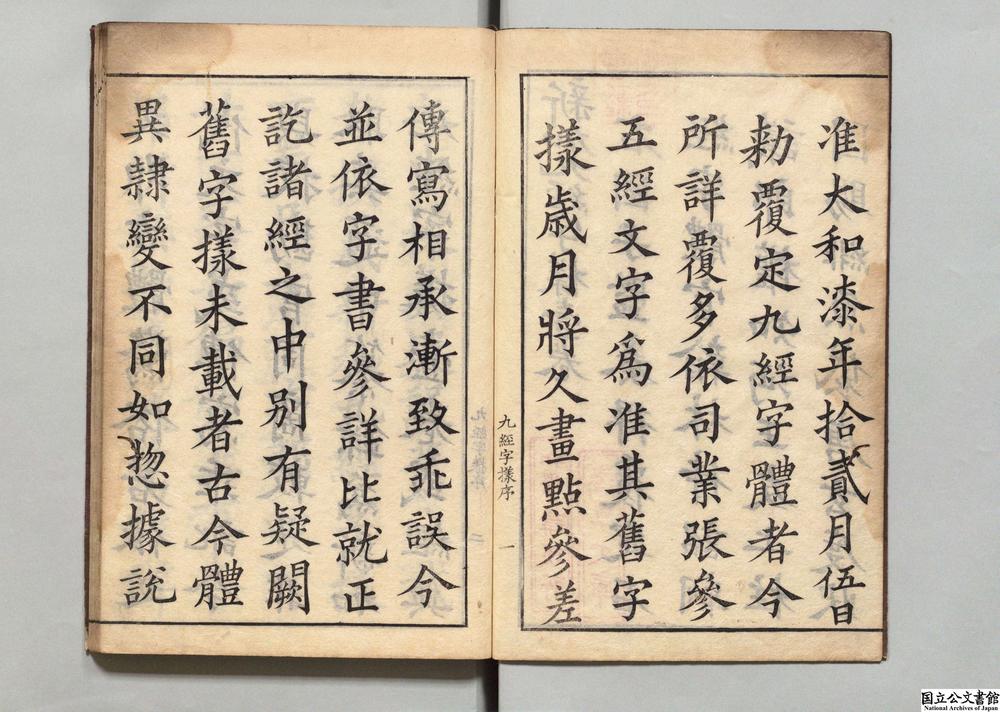 准大和漆年拾貳月伍日
勑覆定九經字體者今
所詳覆多依司業張參
五經文字爲准其舊字
樣歲月將久畫點參差
九經字㨾序 一
傳寫相承漸致乖誤今
並依字書參詳比就正
訖諸經之中別有疑闕
舊字樣未載者古今體
異隷變不同如惣據說
国立公文書館
National Archives of Japan